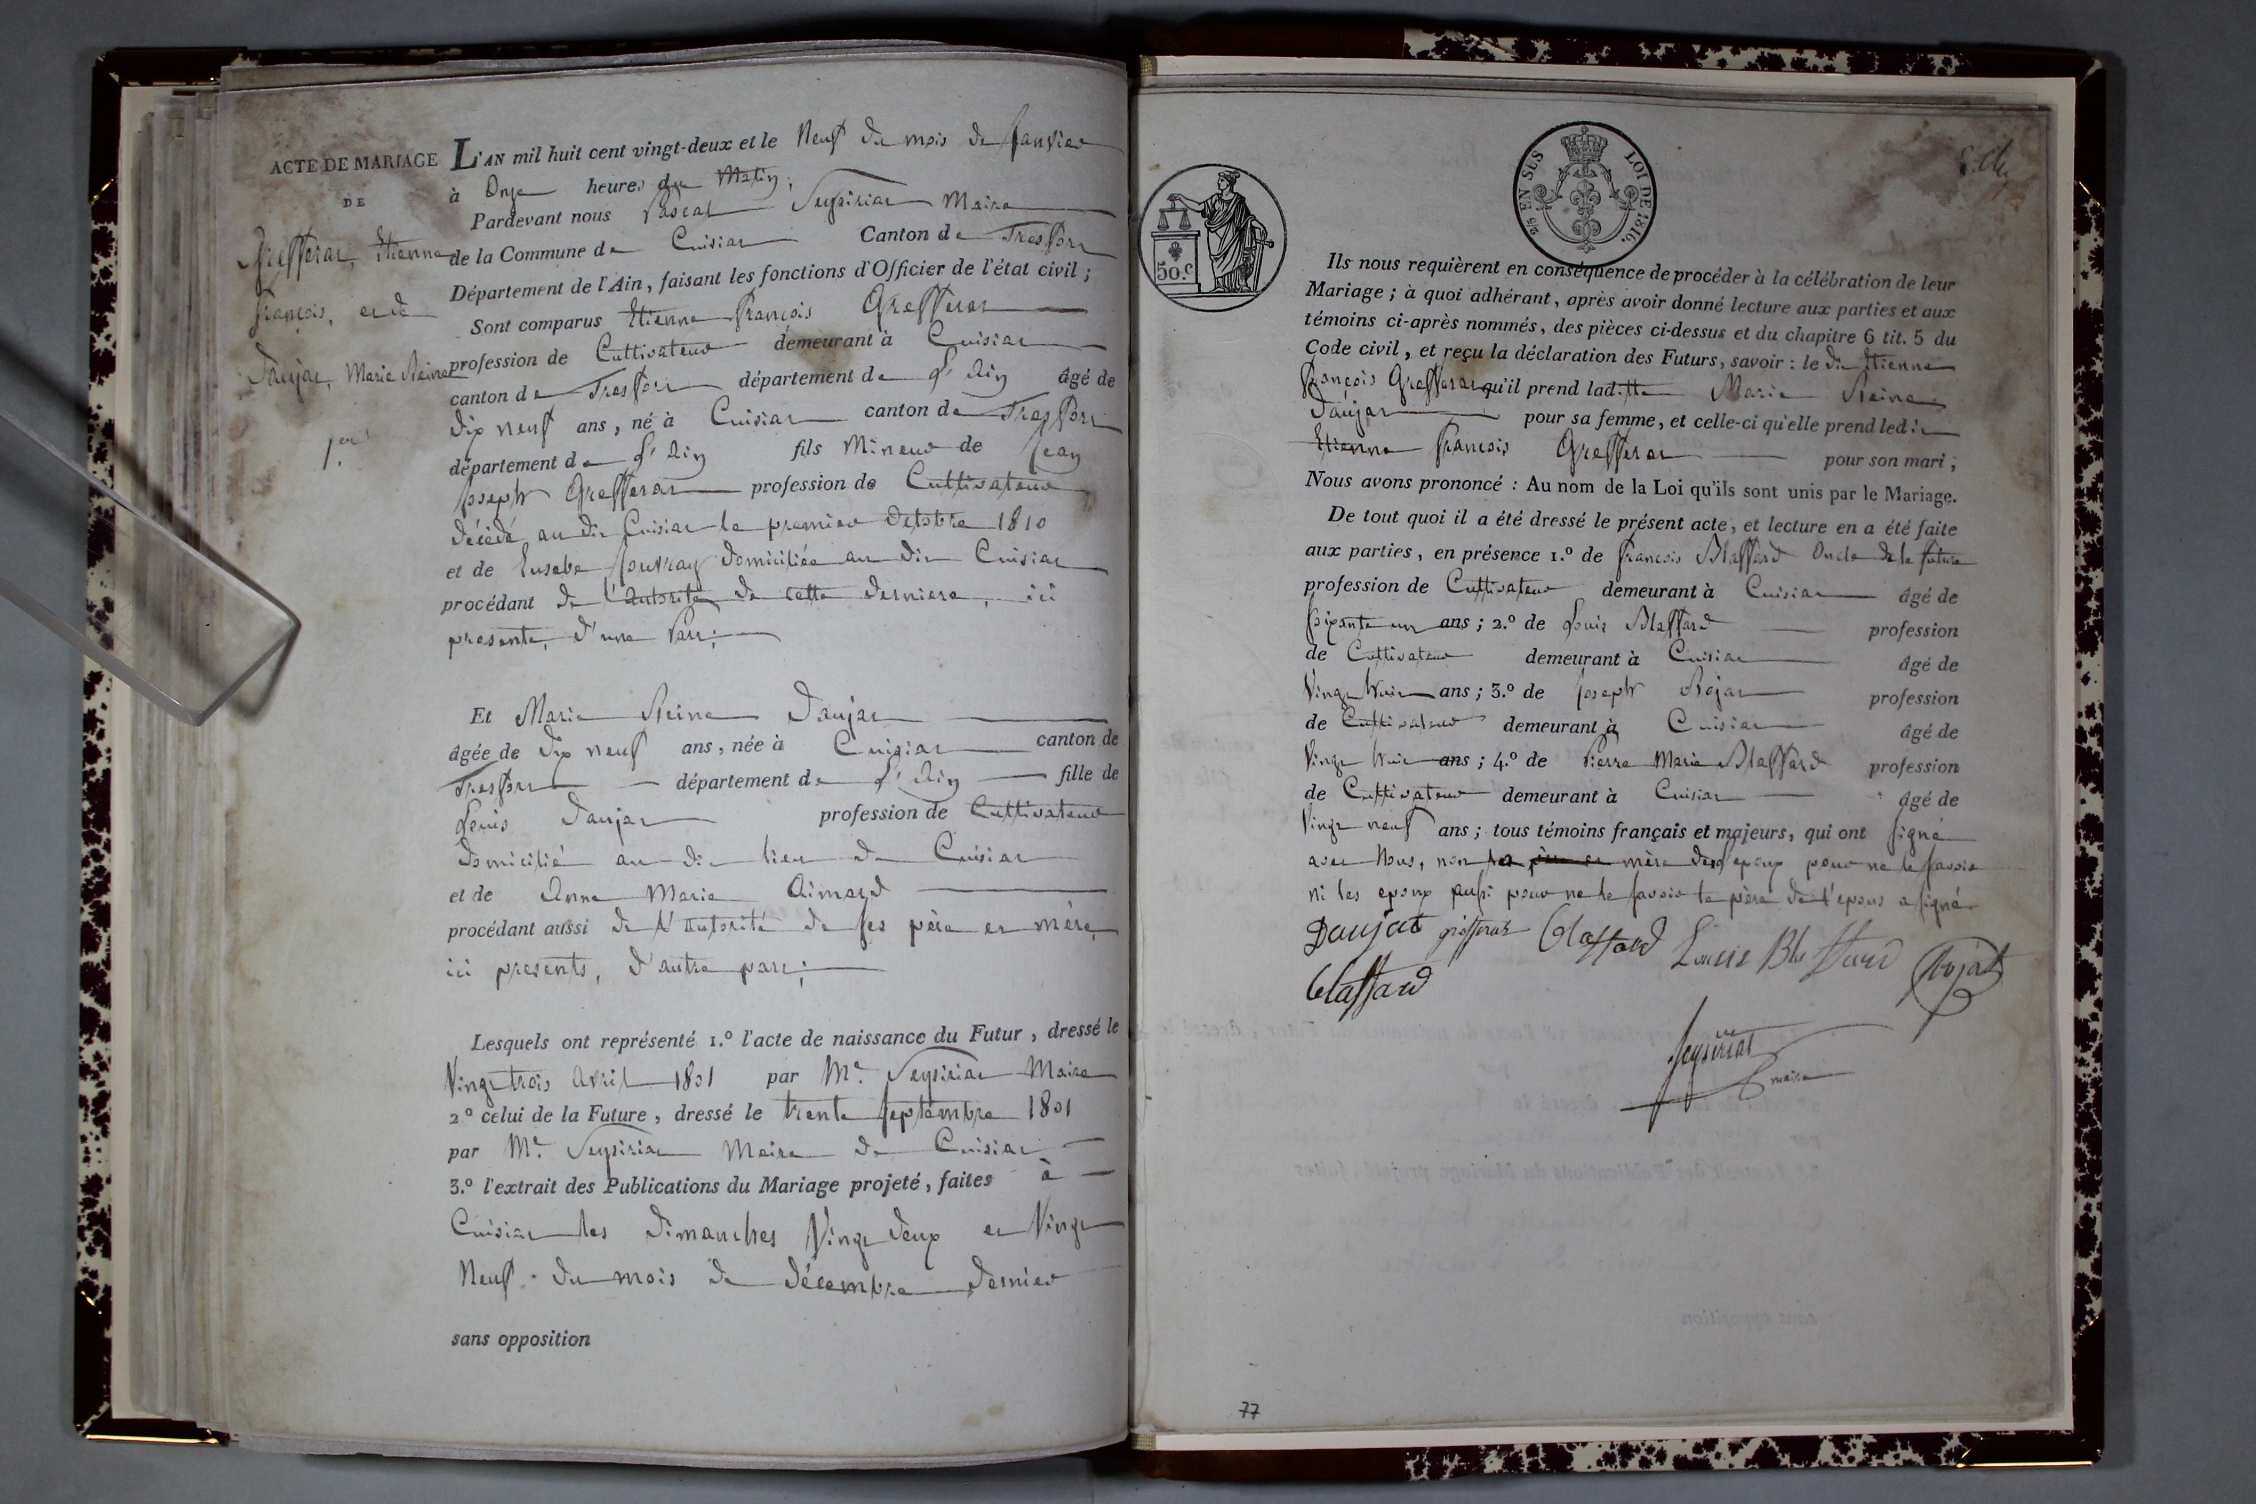 ACTE DE MARIAGE
DE
Grefferat, Etienne
François, et de
Daujat, Marie Reine
1.er
L'AN mil huit cent vingt-deux et le Neuf du mois de Janvier
à Onze heures du Matin;
Pardevant nous Pascal Seysiriat Maire
de la Commune de Cuisiat Canton de Treffort
Département de l'Ain, faisant les fonctions d'Officier de l'état civil;
Sont comparus Etienne François Grefferat
profession de Cultivateur demeurant à Cuisiat
canton de Treffort département de L'Ain âgé de
dix neuf ans, né à Cuisiat canton de Treffort
département de L'Ain fils Mineur de Jean
Joseph Grefferat profession de Cultivateur
décédé au dit Cuisiat le premier Octobre 1810
et de Eusebe Jouvray domiciliée au dit Cuisiat
procédant de l'autorité de cette derniere, ici
presente, d'une Part;
Et Marie Reine Daujat
âgée de dix neuf ans, née à Cuisiat canton de
Treffort département de L'Ain fille de
Louis Daujat profession de Cultivateur
domicilié au dit lieu de Cuisiat
et de Anne Marie Aimard
procédant aussi de l'autorité de ses père et mère,
ici presents, d'autre part;
Lesquels ont représenté 1.º l'acte de naissance du Futur, dressé le
Vingt trois avril 1801 par Mr. Seysiriat Maire
2º celui de la Future, dressé le trente Septembre 1801
par Mr. Seysiriat Maire de Cuisiat
3.º l'extrait des Publications du Mariage projeté, faites à
Cuisiat les dimanches Vingt deux et Vingt
Neuf du mois de décembre dernier
sans opposition
50.c
EN SUS
LOI DE 1816.
Ils nous requièrent en conséquence de procéder à la célébration de leur
Mariage; à quoi adhérant, après avoir donné lecture aux parties et aux
témoins ci-après nommés, des pièces ci-dessus et du chapitre 6 tit. 5 du
Code civil, et reçu la déclaration des Futurs, savoir: le dit Etienne
François Grefferat qu'il prend ladite Marie Reine
Daujat pour sa femme, et celle-ci qu'elle prend ledit
Etienne François Grefferat pour son mari;
Nous avons prononcé: Au nom de la Loi qu'ils sont unis par le Mariage.
De tout quoi il a été dressé le présent acte, et lecture en a été faite
aux parties, en présence 1.º de François Blaffard Oncle de la future
profession de Cultivateur demeurant à Cuisiat âgé de
Soixante un ans; 2.º de Louis Blaffard profession
de Cultivateur demeurant à Cuisiat âgé de
Vingt huit ans; 3.º de Joseph Rojat profession
de Cultivateur demeurant à Cuisiat âgé de
Vingt huit ans; 4.º de Pierre Marie Blaffard profession
de Cultivateur demeurant à Cuisiat âgé de
Vingt neuf ans; tous témoins français et majeurs, qui ont signé
avec Nous, non la père et mère de l'epoux pour ne le savoir
ni les epoux aussi pour ne le savoir le père de l'epouse a signé
Daujat grefferat Blaffard Louis Blaffard Rojat
Blaffard
Seysiriat
maire
77